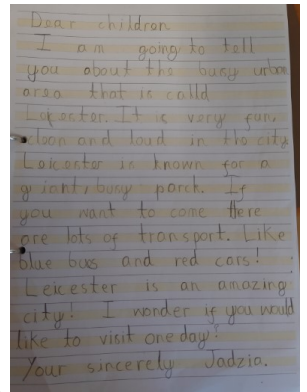 Dear children
I am going to tell
you about the busy urban
area that is calld
Leicester. It is very fun,
clean and loud in the city
Leicester is known for a
giant, busy parck. If
you want to come there
are lots of transport. Like
blue bus and red cars!
Leicester is an amazing
city! I wonder if you would
like to visit one day?
Your sincerely Jadzia.